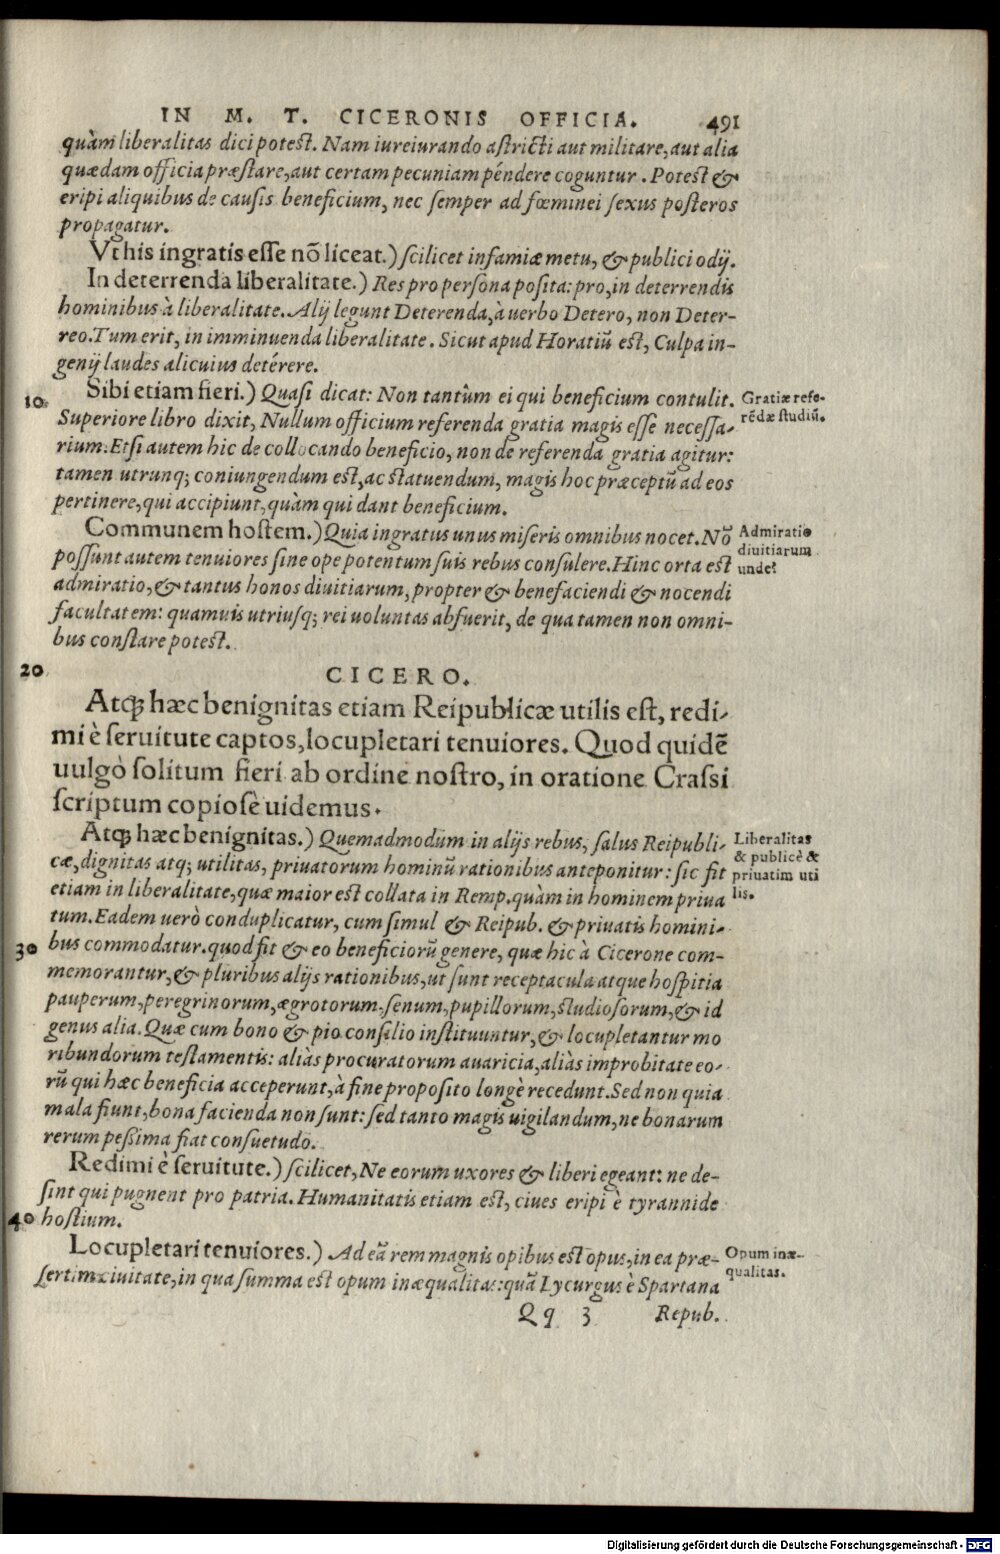 IN M. T. CICERONIS OFFICIA. 491
quàm liberalitas dici potest. Nam iureiurando astricti aut militare, aut alia
quædam officia præstare, aut certam pecuniam péndere coguntur. Potest &
eripi aliquibus de causis beneficium, nec semper ad fœminei sexus posteros
propagatur.
Vt his ingratis esse nõ liceat.) scilicet infamiæ metu, & publici odij.
In deterrenda liberalitate.) Res pro persona posita: pro, in deterrendis
hominibus à liberalitate. Alij legunt Deterenda, à uerbo Detero, non Deter-
reo. Tum erit, in imminuenda liberalitate. Sicut apud Horatiũ est, Culpa in-
genij laudes alicuius detérere.
10 Sibi etiam fieri.) Quasi dicat: Non tantùm ei qui beneficium contulit.
Gratiæ refe-
rẽdæ studiũ.
Superiore libro dixit, Nullum officium referenda gratia magis esse necessa-
rium. Etsi autem hic de collocando beneficio, non de referenda gratia agitur:
tamen utrunq; coniungendum est, ac statuendum, magis hoc præceptũ ad eos
pertinere, qui accipiunt, quàm qui dant beneficium.
Communem hostem.) Quia ingratus unus miseris omnibus nocet. Nõ
Admiratio
diuitiarum
unde?
possunt autem tenuiores sine ope potentum suis rebus consulere. Hinc orta est
admiratio, & tantus honos diuitiarum, propter & benefaciendi & nocendi
facultatem: quamuis utriusq; rei uoluntas absuerit, de qua tamen non omni-
bus constare potest.
20 CICERO.
Atq; hæc benignitas etiam Reipublicæ utilis est, redi-
mi è seruitute captos, locupletari tenuiores. Quod quidẽ
uulgò solitum fieri ab ordine nostro, in oratione Crassi
scriptum copiosè uidemus.
Atq; hæc benignitas.) Quemadmodum in alijs rebus, salus Reipubli-
Liberalitas
& publicè &
priuatim uti
lis.
cæ, dignitas atq; utilitas, priuatorum hominũ rationibus anteponitur: sic fit
etiam in liberalitate, quæ maior est collata in Remp. quàm in hominem priua
tum. Eadem uerò conduplicatur, cum simul & Reipub. & priuatis homini-
30 bus commodatur. quod fit & eo beneficiorũ genere, quæ hic à Cicerone com-
memorantur, & pluribus alijs rationibus, ut sunt receptacula atque hospitia
pauperum, peregrinorum, ægrotorum, senum, pupillorum, studiosorum, & id
genus alia. Quæ cum bono & pio consilio instituuntur, & locupletantur mo
ribundorum testamentis: aliàs procuratorum auaricia, aliàs improbitate eo-
rũ qui hæc beneficia acceperunt, à fine proposito longè recedunt. Sed non quia
mala fiunt, bona facienda non sunt: sed tanto magis uigilandum, ne bonarum
rerum pessima fiat consuetudo.
Redimi è seruitute.) scilicet, Ne eorum uxores & liberi egeant: ne de-
sint qui pugnent pro patria. Humanitatis etiam est, ciues eripi è tyrannide
40 hostium.
Locupletari tenuiores.) Ad eã rem magnis opibus est opus, in ea præ-
Opum inæ-
qualitas.
sertim ciuitate, in qua summa est opum inæqualitas: quã Lycurgus è Spartana
Qq 3 Repub.
Digitalisierung gefördert durch die Deutsche Forschungsgemeinschaft - DFG